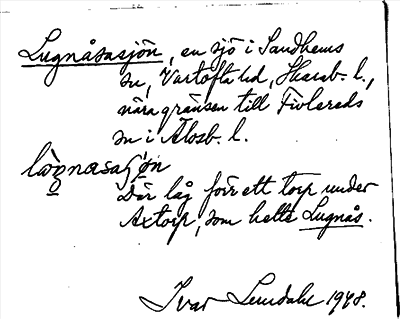 Lugnåsasjön, en sjö i Sandhems
sn, Vartofta hd, Skarab. l.,
nära gränsen till Fivlereds
sn i Älvsb. l.
Där låg förr ett torp under
Axtorp, som hette Lugnås.
Ivar Lundahl 1948.